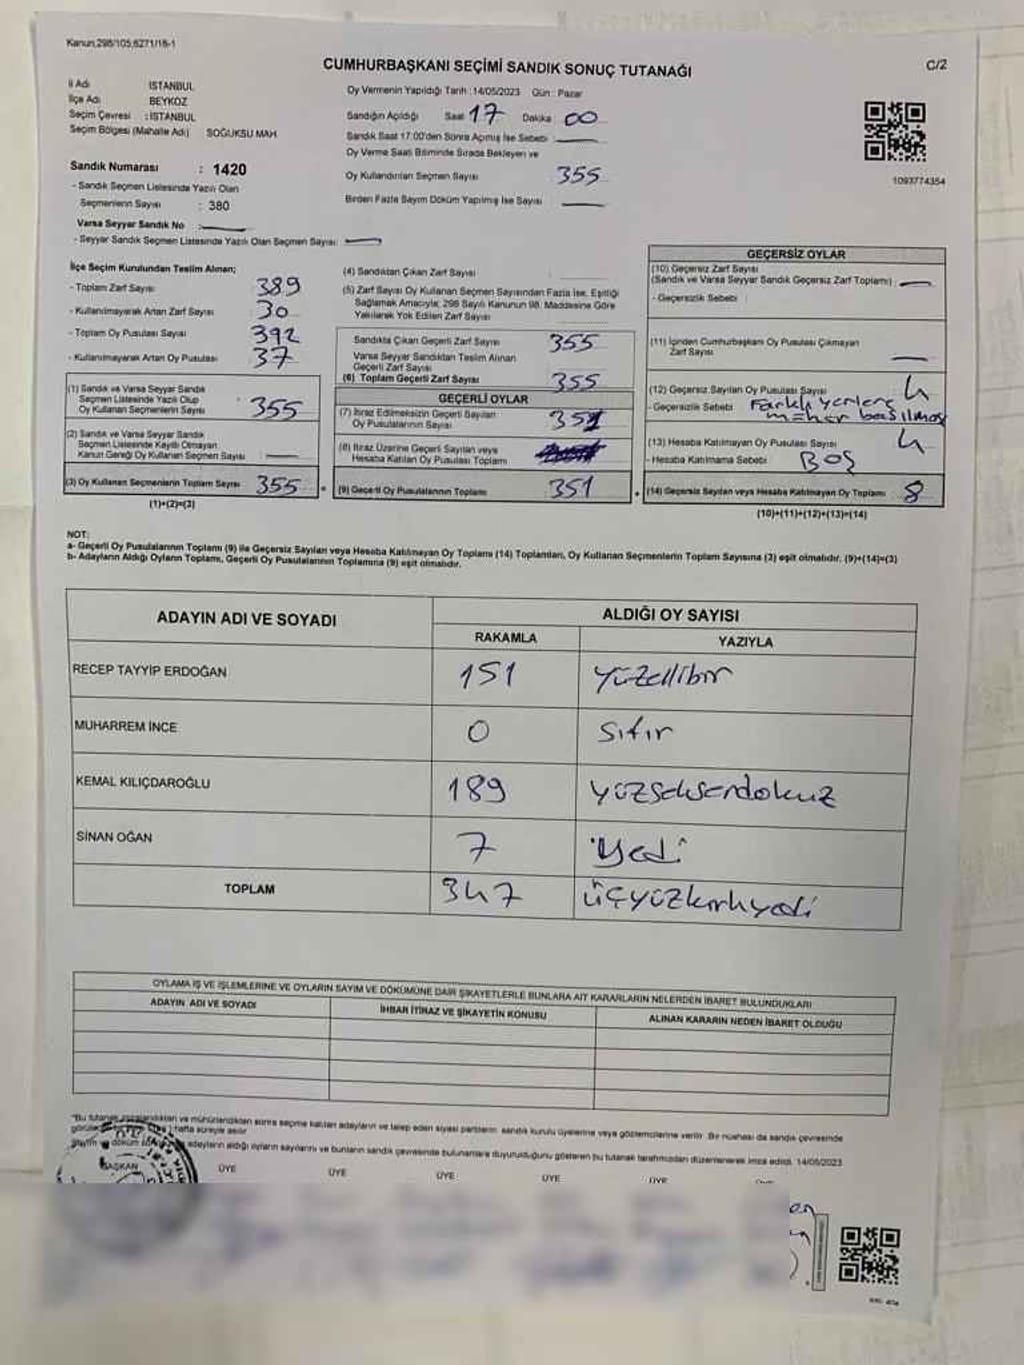 Kanun,298/105,6271/16-1
CUMHURBAŞKANI SEÇİMİ SANDIK SONUÇ TUTANAĞI
C/2
İl Adı İSTANBUL
İlçe Adı BEYKOZ
Seçim Çevresi : İSTANBUL
Seçim Bölgesi (Mahalle Adı) SOĞUKSU MAH.
Oy Vermenin Yapıldığı Tarih :14/05/2023 Gün : Pazar
Sandığın Açıldığı Saat 17 Dakika 00
Sandık Saat 17.00'den Sonra Açılmış İse Sebebi
Oy Verme Saati Bitiminde Sırada Bekleyen ve
Oy Kullandırılan Seçmen Sayısı 355
Birden Fazla Sayım Döküm Yapılmış İse Sayısı
1093774354
Sandık Numarası : 1420
- Sandık Seçmen Listesinde Yazılı Olan
Seçmenlerin Sayısı : 380
Varsa Seyyar Sandık No :
- Seyyar Sandık Seçmen Listesinde Yazılı Olan Seçmen Sayısı:
İlçe Seçim Kurulundan Teslim Alınan;
- Toplam Zarf Sayısı 389
- Kullanılmayarak Artan Zarf Sayısı 30
- Toplam Oy Pusulası Sayısı 392
- Kullanılmayarak Artan Oy Pusulası 37
(1) Sandık ve Varsa Seyyar Sandık
Seçmen Listesinde Yazılı Olup
Oy Kullanan Seçmenlerin Sayısı 355
(2) Sandık ve Varsa Seyyar Sandık
Seçmen Listesinde Kayıtlı Olmayan
Kanun Gereği Oy Kullanan Seçmen Sayısı
(3) Oy Kullanan Seçmenlerin Toplam Sayısı 355
(1)+(2)=(3)
(4) Sandıktan Çıkan Zarf Sayısı
(5) Zarf Sayısı Oy Kullanan Seçmen Sayısından Fazla İse, Eşitliği
Sağlamak Amacıyla; 298 Sayılı Kanunun 98. Maddesine Göre
Yakılarak Yok Edilen Zarf Sayısı
Sandıkta Çıkan Geçerli Zarf Sayısı 355
Varsa Seyyar Sandıktan Teslim Alınan
Geçerli Zarf Sayısı
(6) Toplam Geçerli Zarf Sayısı 355
GEÇERLİ OYLAR
(7) İtiraz Edilmeksizin Geçerli Sayılan
Oy Pusulalarının Sayısı 351
(8) İtiraz Üzerine Geçerli Sayılan veya
Hesaba Katılan Oy Pusulası Toplamı
= (9) Geçerli Oy Pusulalarının Toplamı 351
GEÇERSİZ OYLAR
(10) Geçersiz Zarf Sayısı
(Sandık ve Varsa Seyyar Sandık Geçersiz Zarf Toplamı) :
- Geçersizlik Sebebi :
(11) İçinden Cumhurbaşkanı Oy Pusulası Çıkmayan
Zarf Sayısı
(12) Geçersiz Sayılan Oy Pusulası Sayısı 4
- Geçersizlik Sebebi Farklı yerlere
mühür basılmış
(13) Hesaba Katılmayan Oy Pusulası Sayısı 4
- Hesaba Katılmama Sebebi BOŞ
+ (14) Geçersiz Sayılan veya Hesaba Katılmayan Oy Toplamı 8
(10)+(11)+(12)+(13)=(14)
NOT:
a- Geçerli Oy Pusulalarının Toplamı (9) ile Geçersiz Sayılan veya Hesaba Katılmayan Oy Toplamı (14) Toplamları, Oy Kullanan Seçmenlerin Toplam Sayısına (3) eşit olmalıdır. (9)+(14)=(3)
b- Adayların Aldığı Oyların Toplamı, Geçerli Oy Pusulalarının Toplamına (9) eşit olmalıdır.
ADAYIN ADI VE SOYADI
ALDIĞI OY SAYISI
RAKAMLA YAZIYLA
RECEP TAYYİP ERDOĞAN 151 Yüzellibir
MUHARREM İNCE 0 Sıfır
KEMAL KILIÇDAROĞLU 189 yüzseksendokuz
SİNAN OĞAN 7 Yedi
TOPLAM 347 üçyüzkırkyedi
OYLAMA İŞ VE İŞLEMLERİNE VE OYLARIN SAYIM VE DÖKÜMÜNE DAİR ŞİKAYETLERLE BUNLARA AİT KARARLARIN NELERDEN İBARET BULUNDUKLARI
ADAYIN ADI VE SOYADI İHBAR İTİRAZ VE ŞİKAYETİN KONUSU ALINAN KARARIN NEDEN İBARET OLDUĞU
"Bu tutanak imzalandıktan ve mühürlendikten sonra seçime katılan adayların ve talep eden siyasi partilerin sandık kurulu üyelerine veya gözlemcilerine verilir. Bir nüshası da sandık çevresinde
hafta süreyle asılır
Sayım ve döküm adayların aldığı oyların sayılarını ve bunların sandık çevresinde bulunanlara duyurulduğunu gösteren bu tutanak tarafımızdan düzenlenerek imza edildi. 14/05/2023
BAŞKAN ÜYE ÜYE ÜYE ÜYE ÜYE